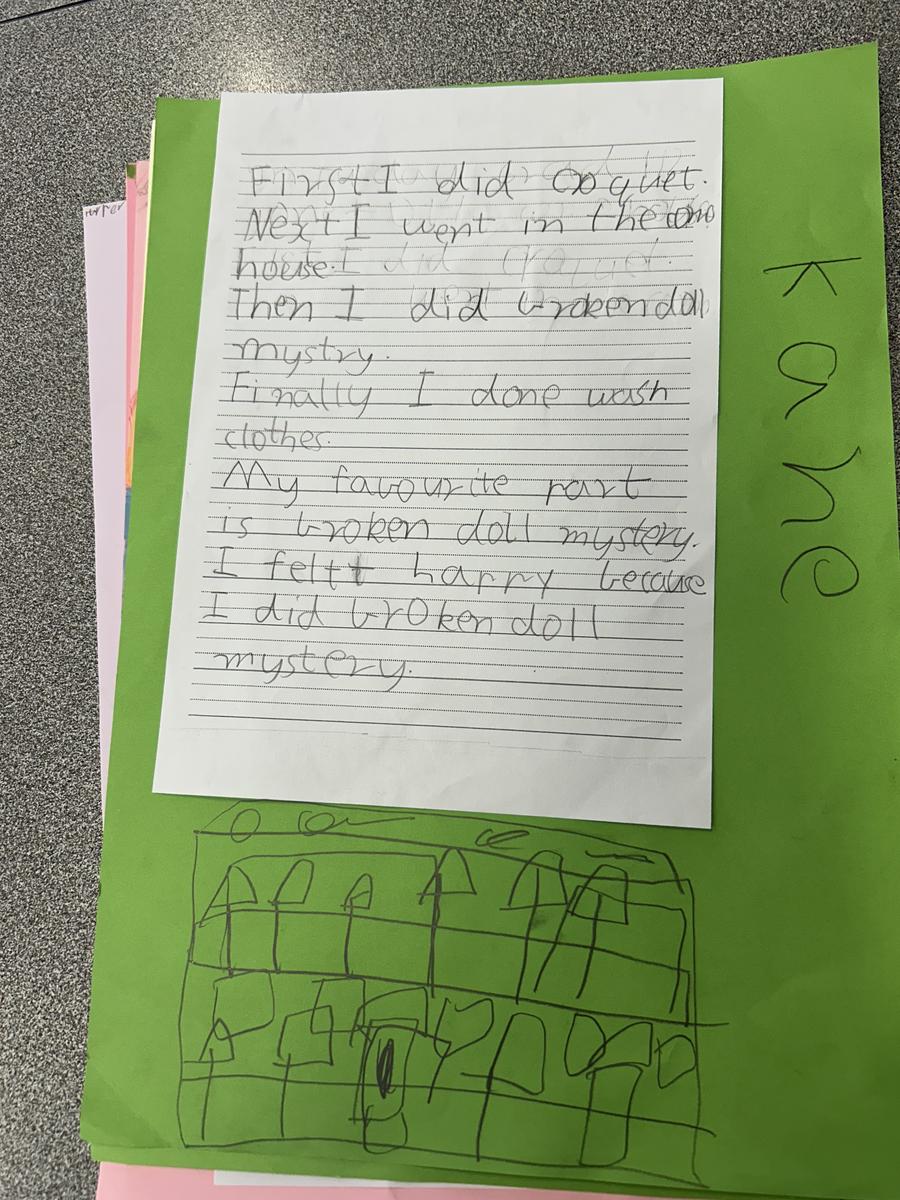 First I did coquet.
Next I went in the
house.
Then I did broken doll
mystry.
Finally I done wash
clothes.
My favourite part
is broken doll mystery.
I feltt happy because
I did broken doll
mystery.
Kane